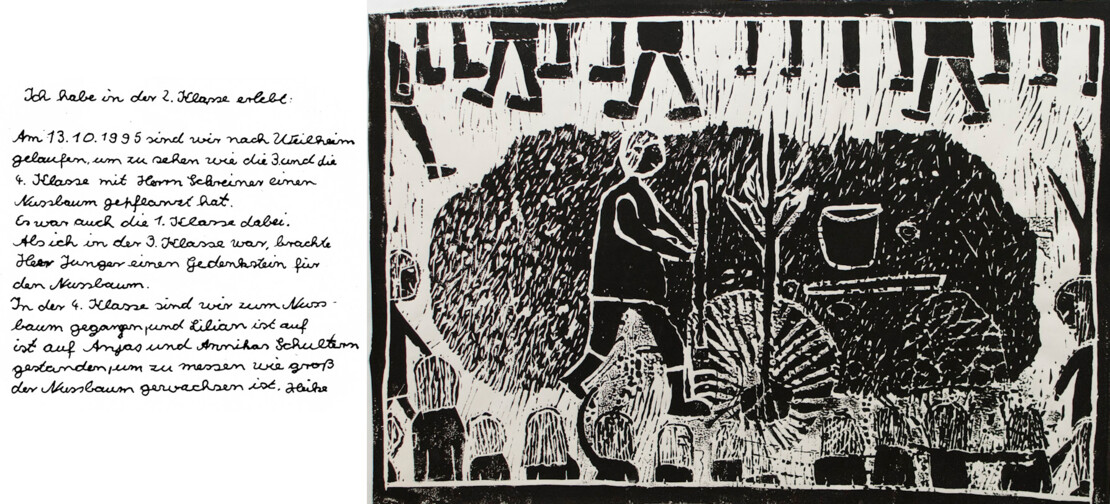 Ich habe in der 2. Klasse erlebt:
Am 13.10.1995 sind wir nach Weilheim
gelaufen, um zu sehen wie die 3. und die
4. Klasse mit Herrn Schreiner einen
Nussbaum gepflanzt hat.
Es war auch die 1. Klasse dabei.
Als ich in der 3. Klasse war, brachte
Herr Junger einen Gedenkstein für
den Nussbaum.
In der 4. Klasse sind wir zum Nuss-
baum gegangen, und Lilian ist auf
ist auf Anjas und Annikas Schultern
gestanden, um zu messen wie groß
der Nussbaum gewachsen ist. Heike